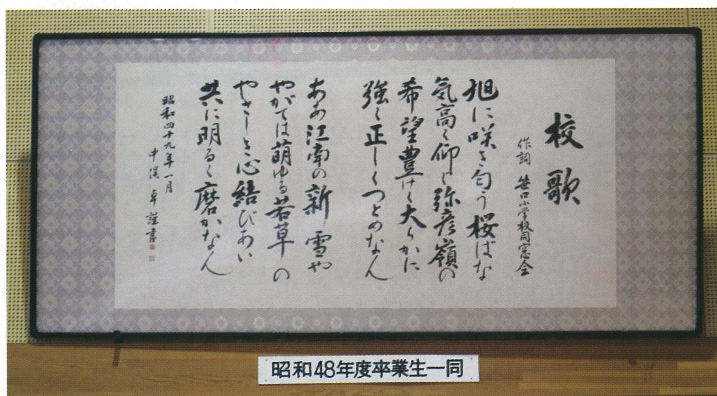 校歌
作詞 笹口小学校同窓会
旭に咲き匂う桜ばな
気高く仰ぐ弥彦嶺の
希望豊けく大らかに
強く正しくつとめなん
ああ江南の新雪や
やがては萌ゆる若草の
やさしき心結びあい
共に明るく磨かなん
昭和四十九年一月
卓謹書
昭和48年度卒業生一同